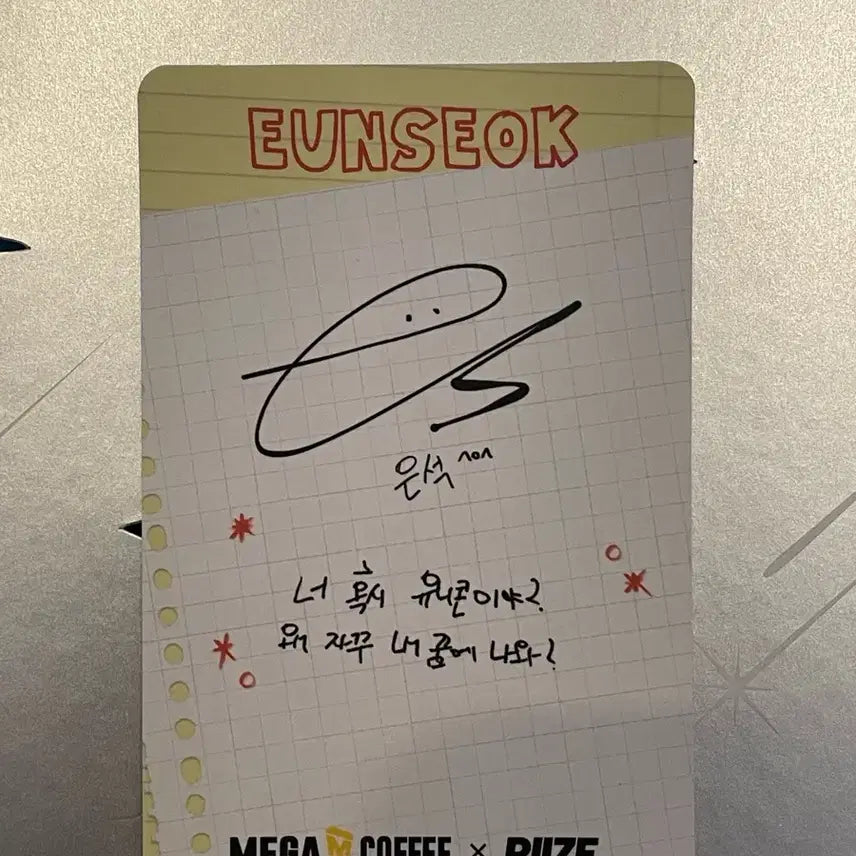 EUNSEOK
은석 ^o^
너 혹시 유니콘이야?
왜 자꾸 내 꿈에 나와?
MEGA M COFFEE × RIIZE